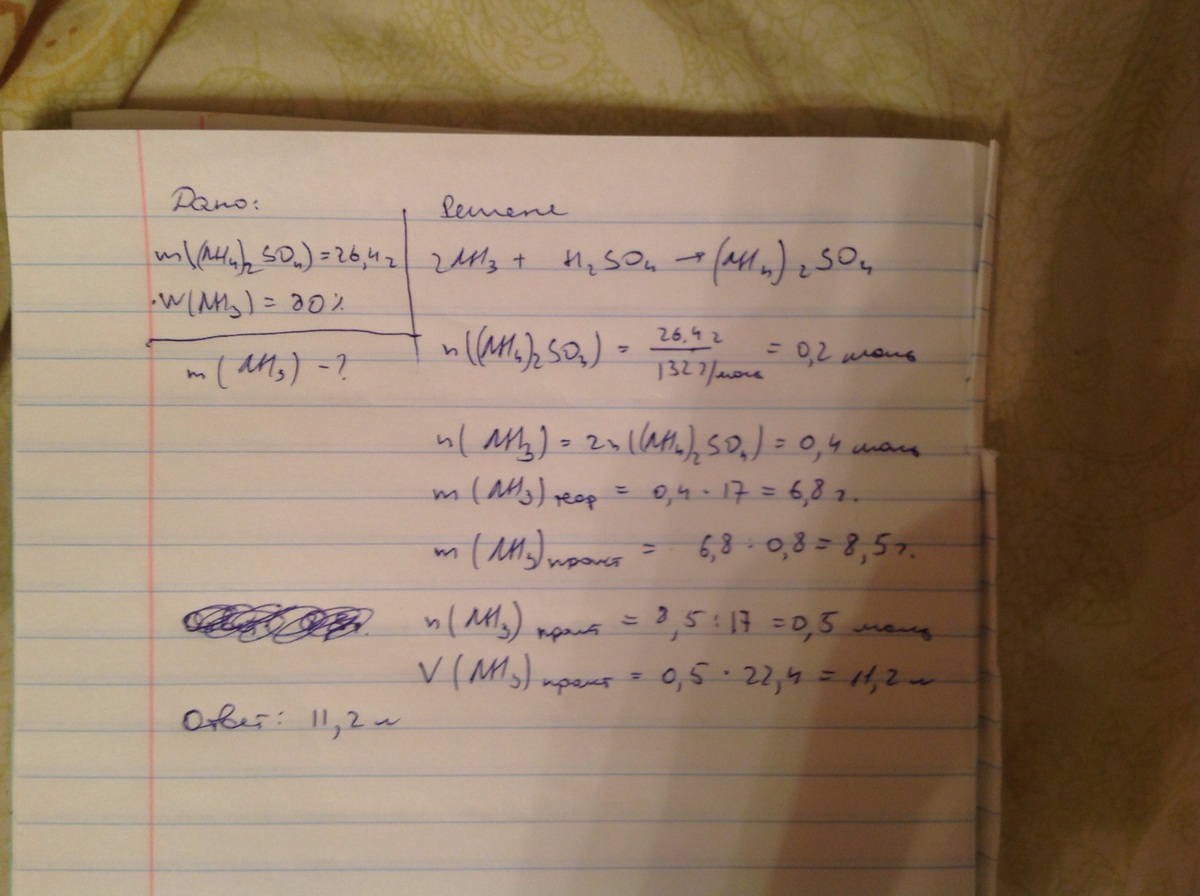 Дано:
m((NH4)2SO4)=26,4 г
W(NH3) = 80%
m(NH3) -?
Решение
2NH3 + H2SO4 → (NH4)2SO4
n((NH4)2SO4) = 26,4 г / 132 г/моль = 0,2 моль
n(NH3) = 2n((NH4)2SO4) = 0,4 моль
m(NH3)теор = 0,4 · 17 = 6,8 г.
m(NH3)практ = 6,8 : 0,8 = 8,5 г.
n(NH3)практ = 8,5 : 17 = 0,5 моль
V(NH3)практ = 0,5 · 22,4 = 11,2 л
Ответ: 11,2 л